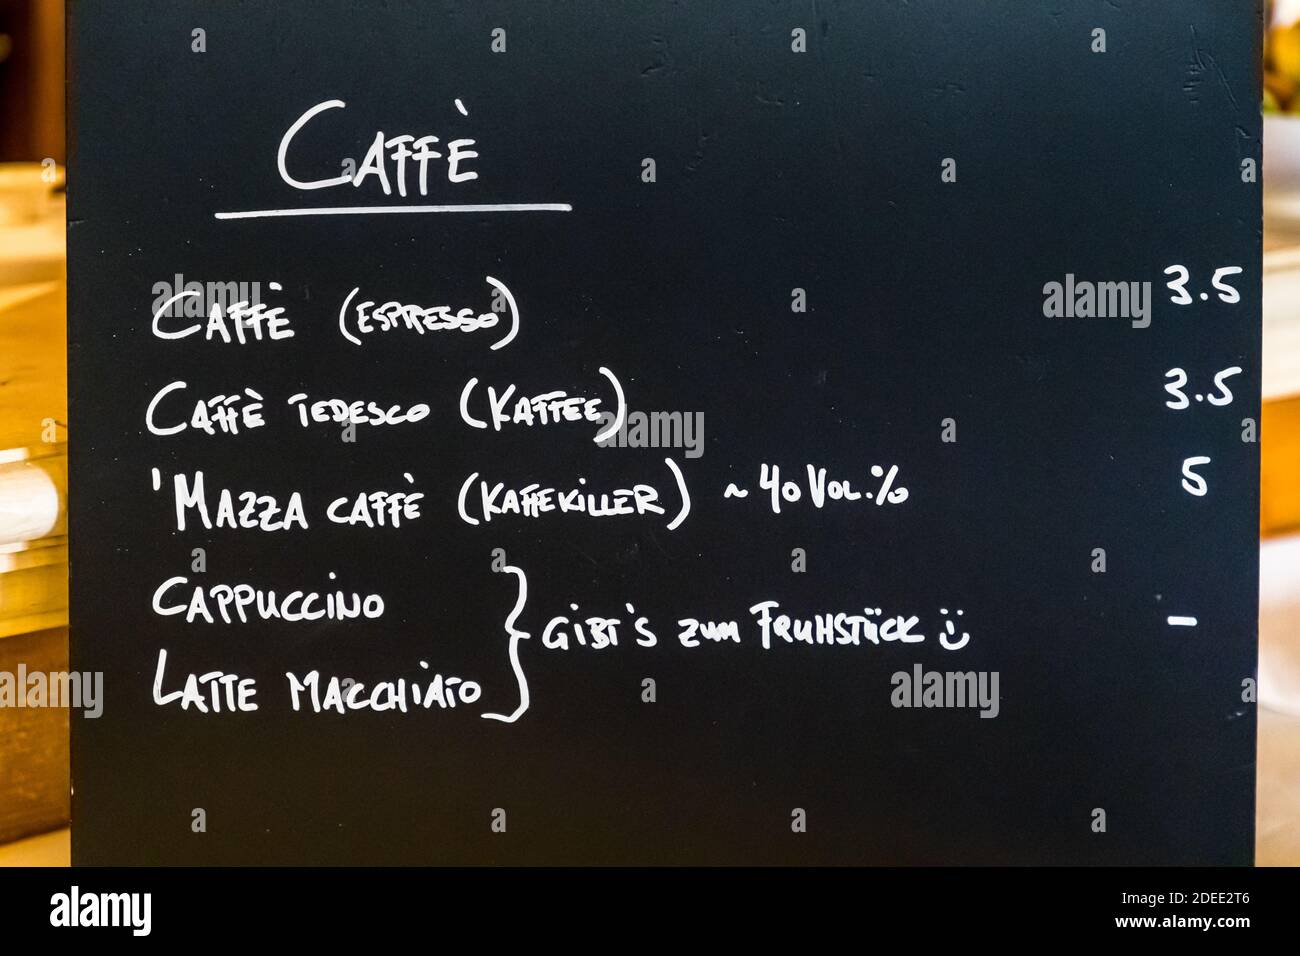 CAFFÈ
CAFFÈ (ESPRESSO) 3.5
CAFFÈ TEDESCO (KAFFEE) 3.5
'MAZZA CAFFÈ (KAFFEKILLER) ~40 VOL.% 5
CAPPUCCINO
GIBT'S ZUM FRUHSTÜCK :) -
LATTE MACCHIATO
alamy
Image ID: 2DEE2T6
www.alamy.com